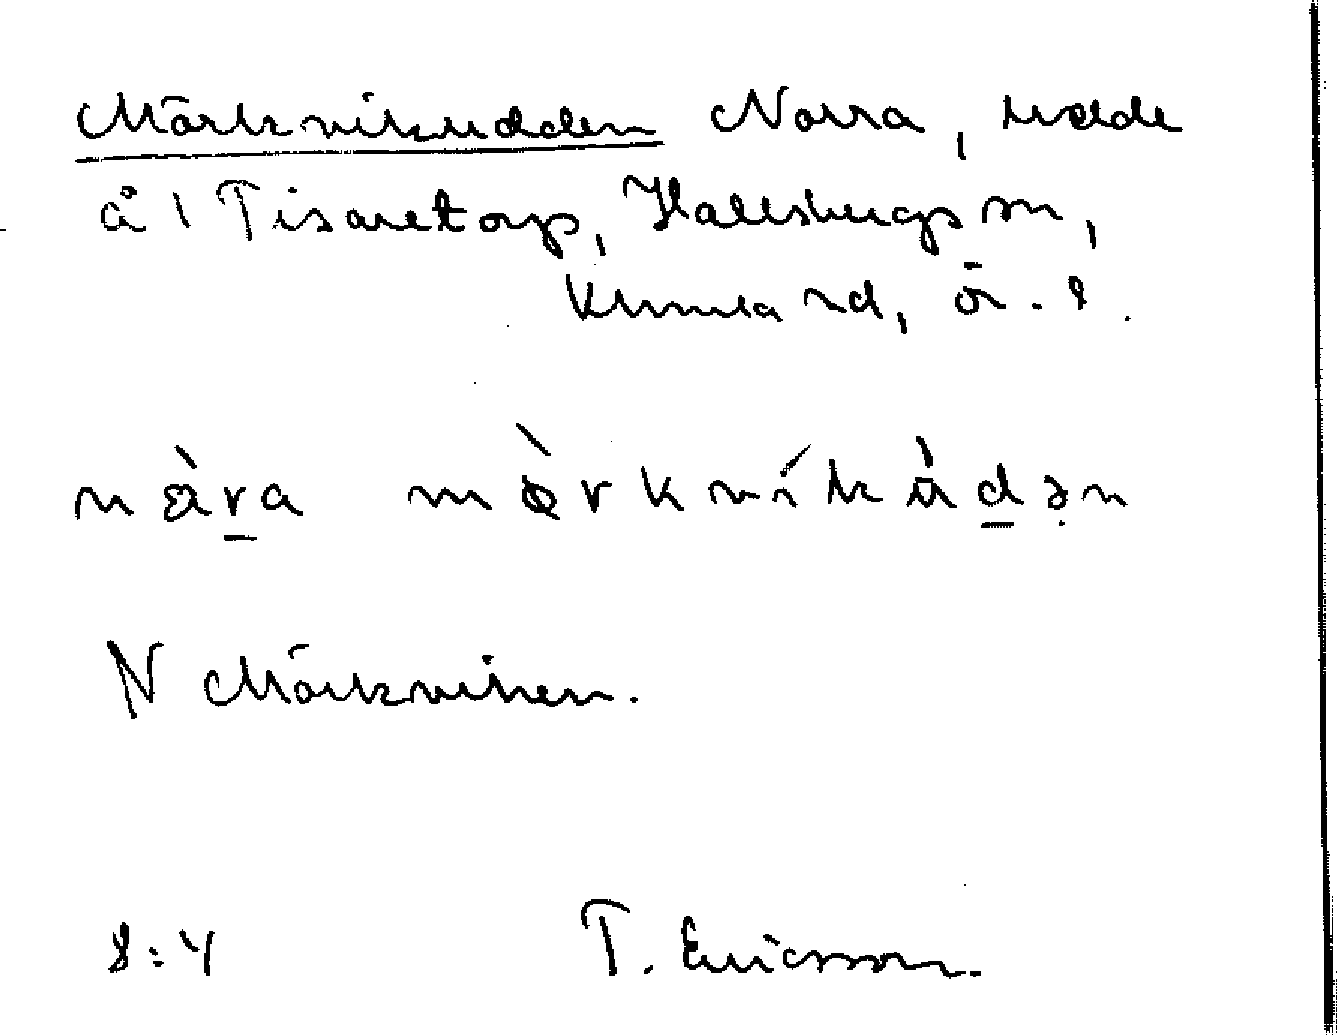 Mörkvikudden Norra, udde
å 1 Tisaretorp, Hallsbergs sn,
Kumla hd, Ör. l.
nὰra mὸrkvíkὰdən
N Mörkviken.
8:4 T. Ericsson.